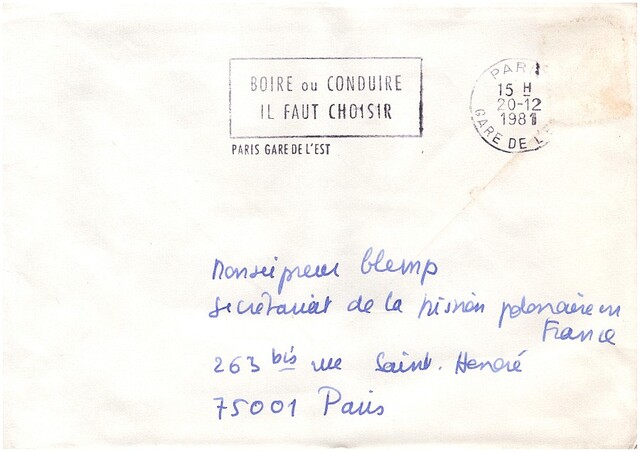 BOIRE ou CONDUIRE
IL FAUT CHOISIR
PARIS GARE DE L'EST
PAR
15 H
20-12
1981
GARE DE L'
Monseigneur Glemp
Secrétariat de la Mission polonaise en
France
263 bis rue Saint. Honoré
75001 Paris